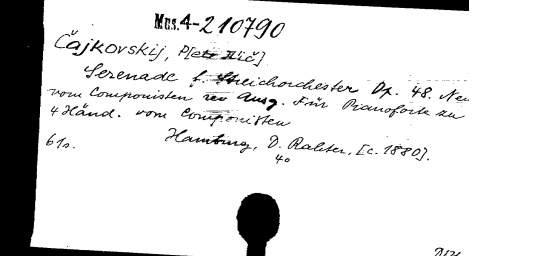 Mus.4-210790
Čajkovskij, P[etr Ilič]
Serenade f. Streichorchester Op. 48. Neu
vom Componisten rev Ausg. Für Pianoforte zu
4 Händ. vom Componisten
Hamburg, D. Rahter, [c. 1880].
61s. 4o